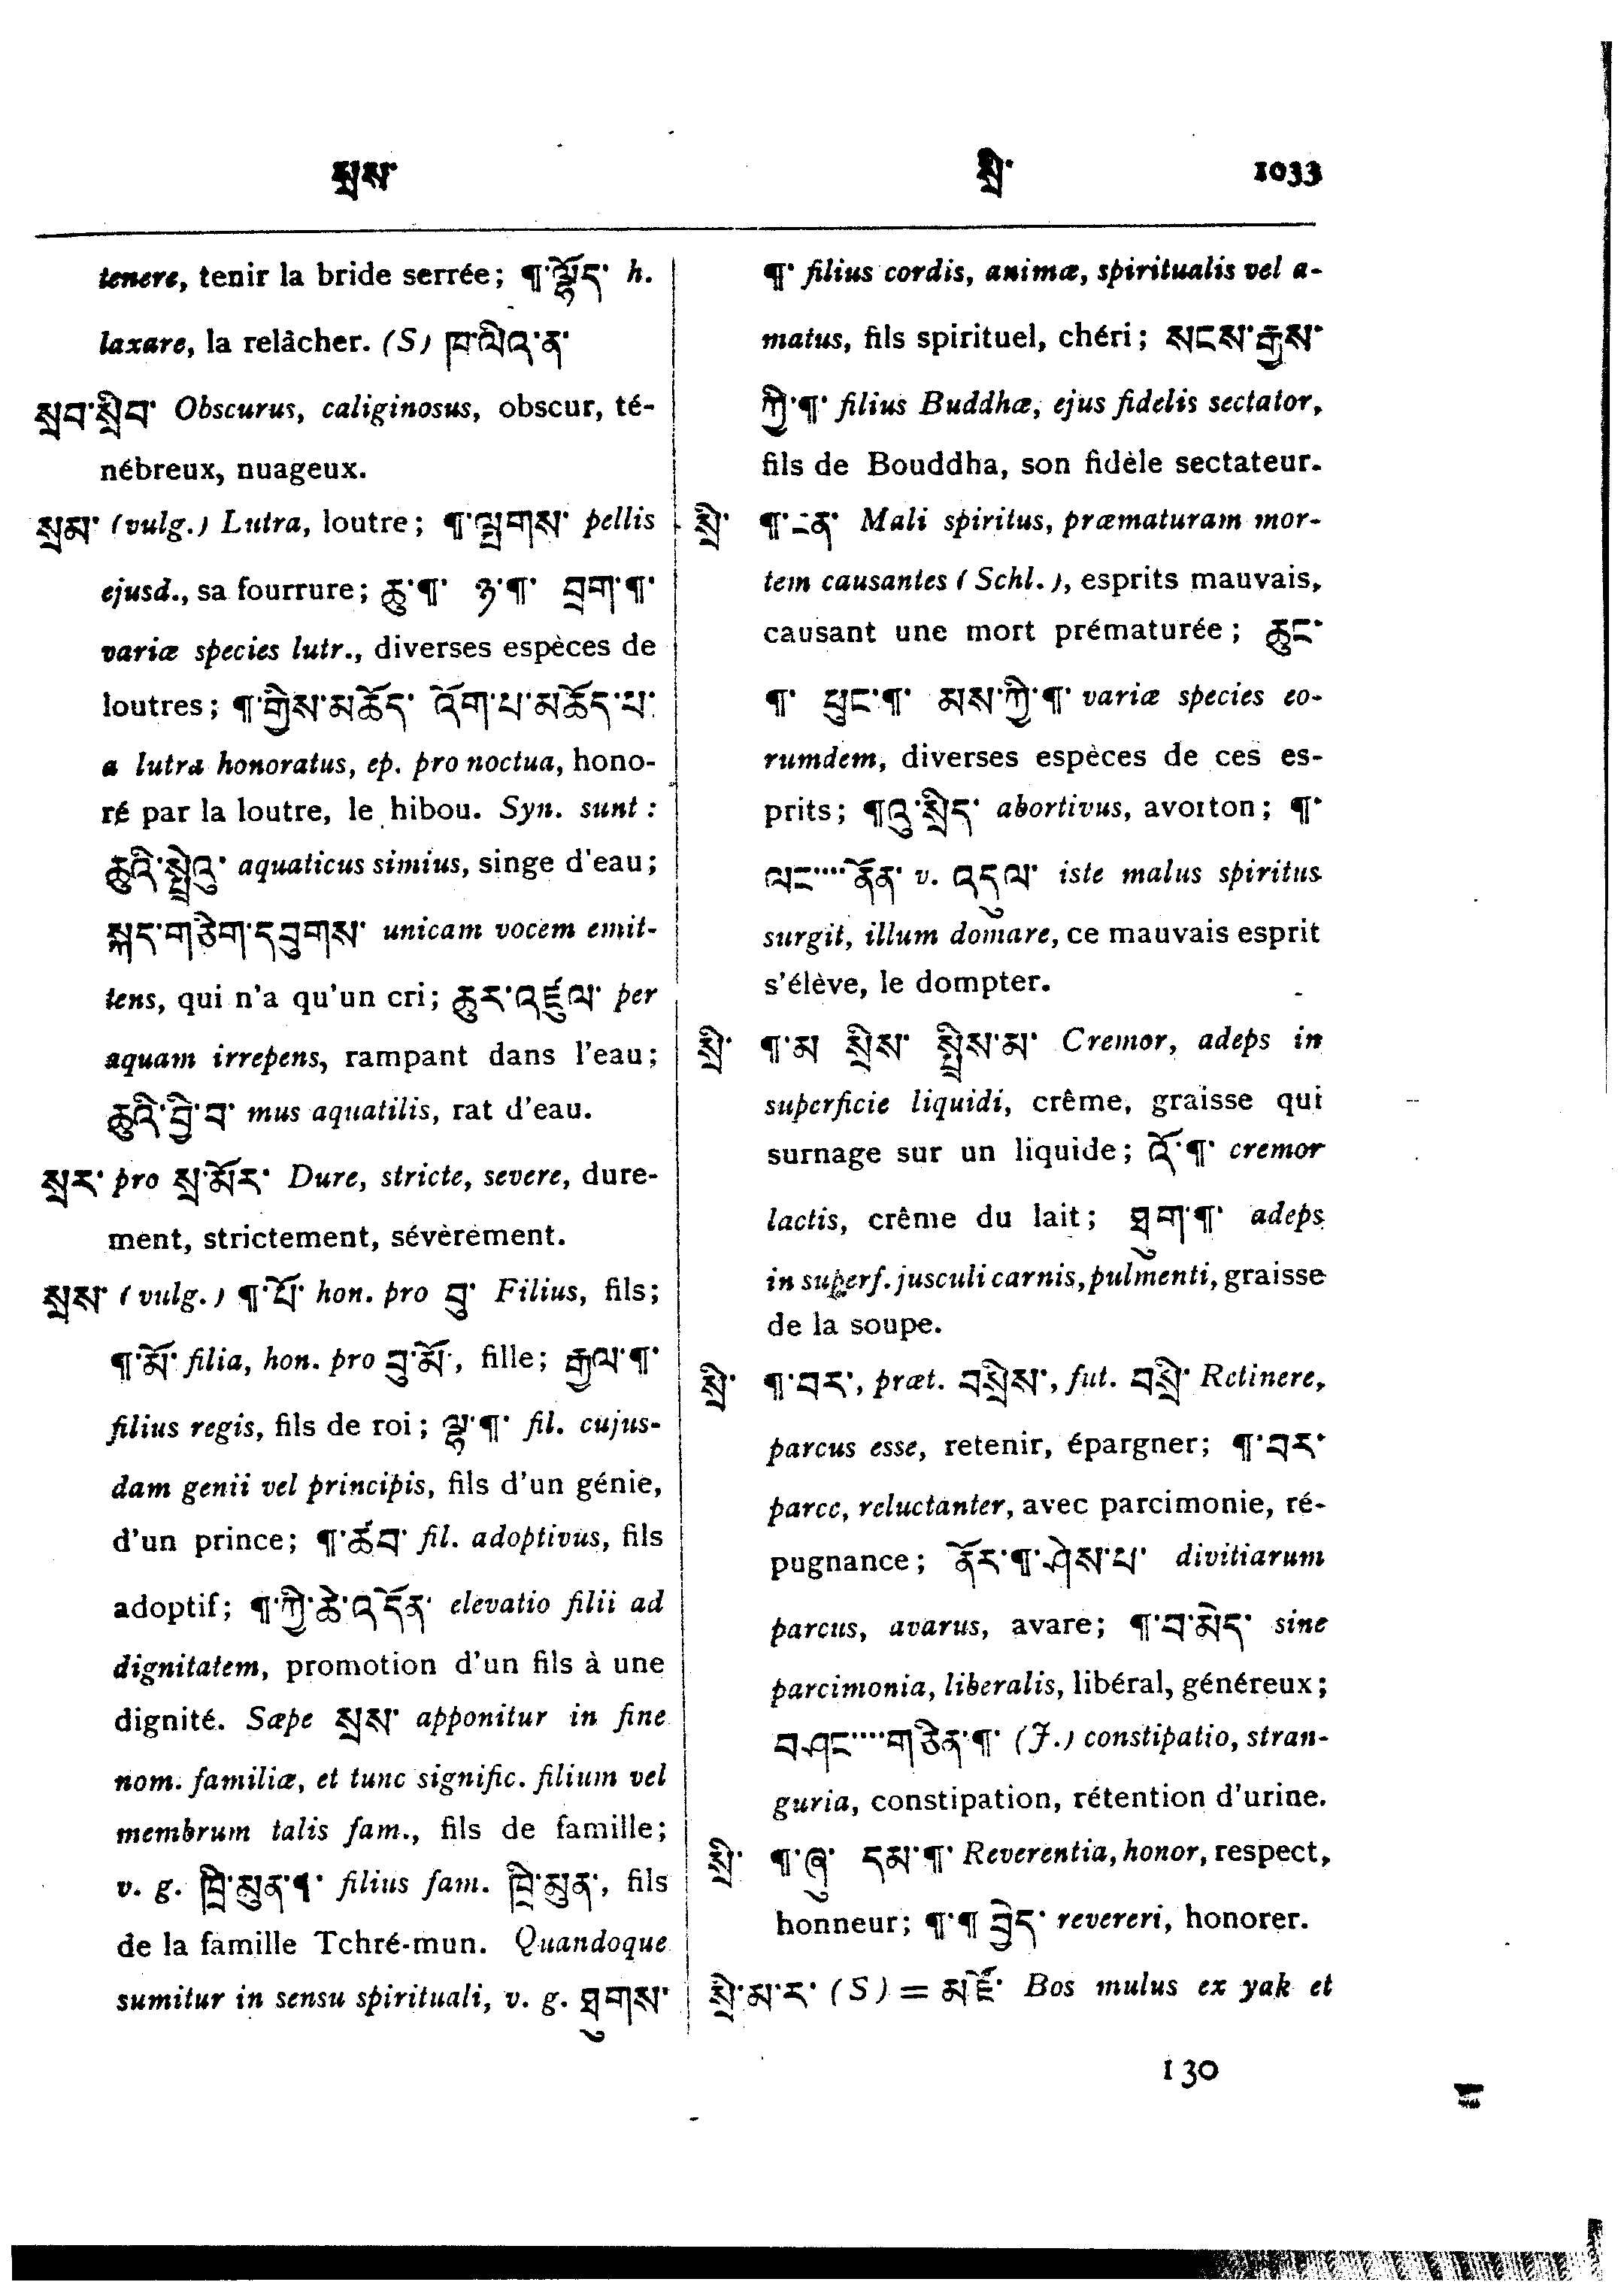 སྲས་ སྲི་ 1033
tenere, tenir la bride serrée; ¶་ལྷོད་ h.
laxare, la relâcher. (S) ཁ་ལིའ་ན་
སྲབ་སྲིབ་ Obscurus, caliginosus, obscur, té-
nébreux, nuageux.
སྲམ་ (vulg.) Lutra, loutre; ¶་ལྤགས་ pellis
ejusd., sa fourrure; ཆུ་¶་ ཉ་¶་ བྲག་¶་
variæ species lutr., diverses espèces de
loutres; ¶་གྱིས་མཆོད་ འོག་པ་མཆོད་པ་
a lutra honoratus, ep. pro noctua, hono-
ré par la loutre, le hibou. Syn. sunt :
ཆུའི་སྤྲེའུ་ aquaticus simius, singe d'eau;
སྐད་གཅིག་དབུགས་ unicam vocem emit-
tens, qui n'a qu'un cri; ཆུར་འཛུལ་ per
aquam irrepens, rampant dans l'eau;
ཆུའི་བྱི་བ་ mus aquatilis, rat d'eau.
སྲར་ pro སྲ་མོར་ Dure, stricte, severe, dure-
ment, strictement, sévèrement.
སྲས་ (vulg.) ¶་པོ་ hon. pro བུ་ Filius, fils;
¶་མོ་ filia, hon. pro བུ་མོ་, fille; རྒྱལ་¶་
filius regis, fils de roi; ལྷ་¶་ fil. cujus-
dam genii vel principis, fils d'un génie,
d'un prince; ¶་ཚབ་ fil. adoptivus, fils
adoptif; ¶་ཀྱི་ཆེ་འདོན་ elevatio filii ad
dignitatem, promotion d'un fils à une
dignité. Sæpe སྲས་ apponitur in fine
nom. familiæ, et tunc signific. filium vel
membrum talis fam., fils de famille;
v. g. ཁྲི་མུན་¶་ filius fam. ཁྲི་མུན་, fils
de la famille Tchré-mun. Quandoque
sumitur in sensu spirituali, v. g. ཐུགས་
¶་ filius cordis, animæ, spiritualis vel a-
matus, fils spirituel, chéri; སངས་རྒྱས་
ཀྱི་¶་ filius Buddhæ, ejus fidelis sectator,
fils de Bouddha, son fidèle sectateur.
སྲི་ ¶་ངན་ Mali spiritus, præmaturam mor-
tem causantes (Schl.), esprits mauvais,
causant une mort prématurée; ཆུང་
¶་ ཕུང་¶་ མས་ཀྱི་¶་ variæ species eo-
rumdem, diverses espèces de ces es-
prits; ¶འུ་སྲིད་ abortivus, avorton; ¶་
ལང་····ནོན་ v. འདུལ་ iste malus spiritus
surgit, illum domare, ce mauvais esprit
s'élève, le dompter.
སྲི་ ¶་མ སྲིས་ སྤྲིས་མ་ Cremor, adeps in
superficie liquidi, crême, graisse qui
surnage sur un liquide; འོ་¶་ cremor
lactis, crême du lait; ཐུག་¶་ adeps
in superf. jusculi carnis, pulmenti, graisse
de la soupe.
སྲི་ ¶་བར་, præt. བསྲིས་, fut. བསྲི་ Retinere,
parcus esse, retenir, épargner; ¶་བར་
parce, reluctanter, avec parcimonie, ré-
pugnance; ནོར་¶་ཤེས་པ་ divitiarum
parcus, avarus, avare; ¶་བ་མེད་ sine
parcimonia, liberalis, libéral, généreux;
བཤང་····གཅིན་¶་ (J.) constipatio, stran-
guria, constipation, rétention d'urine.
སྲི་ ¶་ཞུ་ དམ་¶་ Reverentia, honor, respect,
honneur; ¶་¶ བྱེད་ revereri, honorer.
སྲི་མ་ར་ (S) = མཛོ་ Bos mulus ex yak et
130